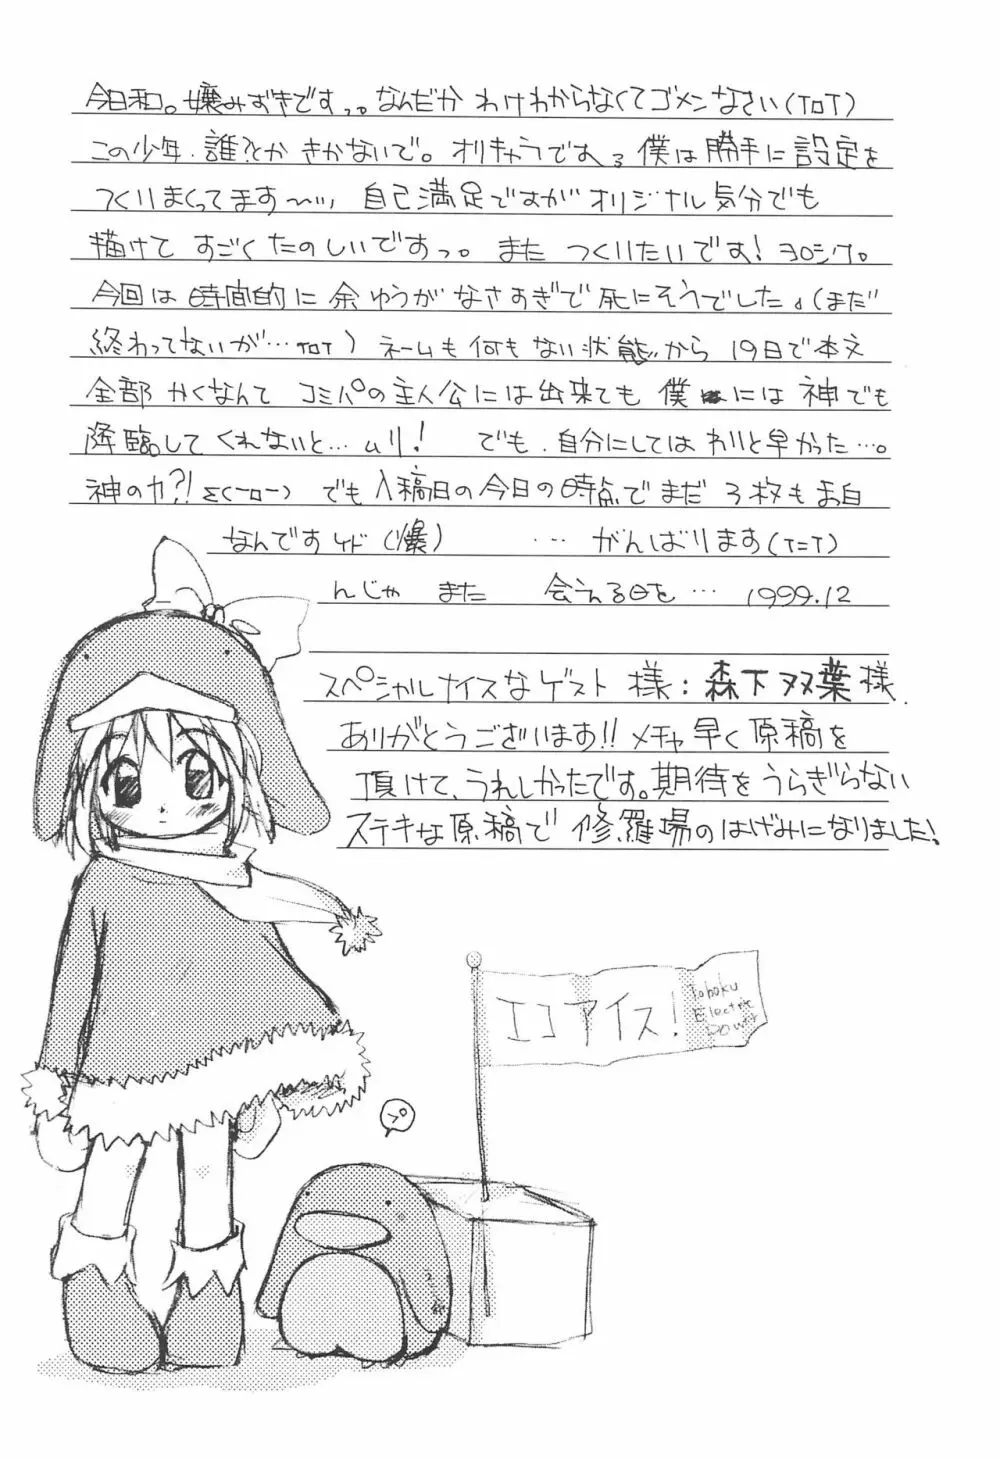 今日和。嬢みずきですっ。なんだか わけわからなくてゴメンなさい(ToT)
この少年.誰?とか きかないで。オリキャラです。僕は勝手に設定を
つくりまくってます〜 自己満足ですが オリジナル気分でも
描けて すごくたのしいですっ。また つくりたいです!ヨロシク。
今回は時間的に余ゆうが なさすぎで死にそうでした。(まだ
終わってないが…ToT) ネームも何もない状態から 19日で本文
全部 かくなんて コミパの主人公には出来ても 僕には神でも
降臨して くれないと…ムリ! でも.自分にしては わりと早かった…。
神の力?!Σ(ーローー) でも入稿日の今日の時点でまだ 3枚もま白
なんですケド(爆) … がんばります(T=T)
んじゃ また 会える日を… 1999.12
スペシャルナイスなゲスト 様:森下双葉様
ありがとうございます!!メチャ早く原稿を
頂けて、うれしかったです。期待をうらぎらない
ステキな原稿で 修羅場のはげみになりました!
エコアイス!
Tohoku
Electric
Power